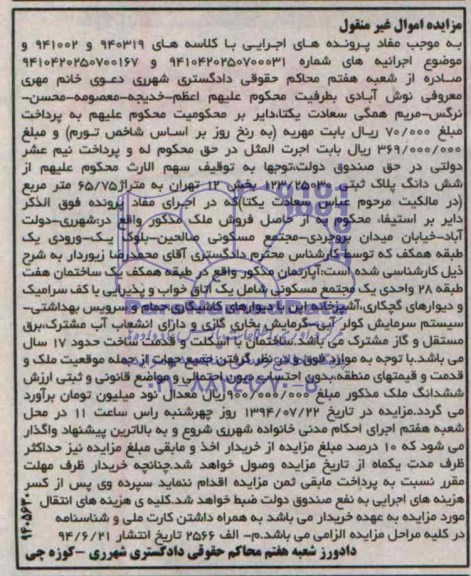 مزایده اموال غیر منقول
به موجب مفاد پرونده های اجرایی با کلاسه های ۹۴۰۳۱۹ و ۹۴۱۰۰۲ و
موضوع اجرائیه های شماره ۹۴۱۰۴۲۰۲۵۰۷۰۰۰۳۱ و ۹۴۱۰۴۲۰۲۵۰۷۰۰۱۶۷
صادره از شعبه هفتم محاکم حقوقی دادگستری شهرری دعوی خانم مهری
معروفی نوش آبادی بطرفیت محکوم علیهم اعظم-خدیجه-معصومه-محسن-
نرگس-مریم همگی سعادت یکتا،دایر بر محکومیت محکوم علیهم به پرداخت
مبلغ ۷۰/۰۰۰ ریال بابت مهریه (به نرخ روز بر اساس شاخص تورم) و مبلغ
۳۶۹/۰۰۰/۰۰۰ ریال بابت اجرت المثل در حق محکوم له و پرداخت نیم عشر
دولتی در حق صندوق دولت،توجها به توقیف سهم الارث محکوم علیهم از
شش دانگ پلاک ثبتی بخش ۱۲ تهران به متراژ ۶۵/۷۵ متر مربع
(در مالکیت مرحوم عباس سعادت یکتا)که در اجرای مفاد پرونده فوق الذکر
دایر بر استیفاء محکوم به از حاصل فروش ملک مذکور واقع در:شهرری-دولت
آباد-خیابان میدان بروجردی-مجتمع مسکونی صالحین-بلوک یک-ورودی یک
طبقه همکف که توسط کارشناس محترم دادگستری آقای محمدرضا زیوردار به شرح
ذیل کارشناسی شده است:آپارتمان مذکور واقع در طبقه همکف یک ساختمان هفت
طبقه ۲۸ واحدی یک مجتمع مسکونی شامل یک اتاق خواب و پذیرایی با کف سرامیک
و دیوارهای گچکاری،آشپزخانه اپن با دیوارهای کاشیکاری،حمام و سرویس بهداشتی-
سیستم سرمایش کولر آبی-گرمایش بخاری گازی و دارای انشعاب آب مشترک،برق
مستقل و گاز مشترک می باشد.ساختمان با اسکلت و قدمت ساخت حدود ۱۷ سال
می باشد.با توجه به موارد فوق و در نظر گرفتن جمیع جهات از جمله موقعیت ملک و
قدمت و قیمتهای منطقه،بدون احتساب دیون احتمالی و مواضع قانونی و ثبتی ارزش
ششدانگ ملک مذکور مبلغ ۹۰۰/۰۰۰/۰۰۰ریال معادل نود میلیون تومان برآورد
می گردد.مزایده در تاریخ ۱۳۹۴/۰۷/۲۲ روز چهرشنبه راس ساعت ۱۱ در محل
شعبه هفتم اجرای احکام مدنی خانواده شهرری شروع و به بالاترین پیشنهاد واگذار
می شود که ۱۰ درصد مبلغ مزایده از خریدار اخذ و مابقی مبلغ مزایده نیز حداکثر
ظرف مدت یکماه از تاریخ مزایده وصول خواهد شد.چنانچه خریدار ظرف مهلت
مقرر نسبت به پرداخت مابقی ثمن مزایده اقدام ننماید سپرده وی پس از کسر
هزینه های اجرایی به نفع صندوق دولت ضبط خواهد شد.کلیه ی هزینه های انتقال
مورد مزایده به عهده خریدار می باشد به همراه داشتن کارت ملی و شناسنامه
در کلیه مراحل مزایده الزامی می باشد.م- الف ۲۵۶۶ تاریخ انتشار ۹۴/۶/۲۱
دادورز شعبه هفتم محاکم حقوقی دادگستری شهرری -کوزه چی